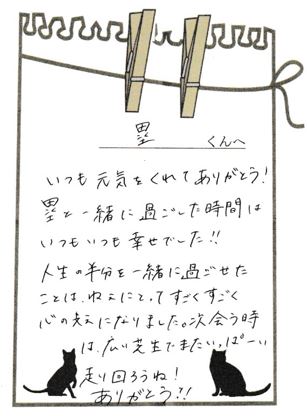 塁 くんへ
いつも元気をくれてありがとう!
塁と一緒に過ごした時間は
いつもいつも幸せでした!!
人生の半分を一緒に過ごせた
ことは、ねえにとってすごくすごく
心の支えになりました。次会う時
は、広い芝生でまたいっぱーい
走り回ろうね!
ありがとう!!